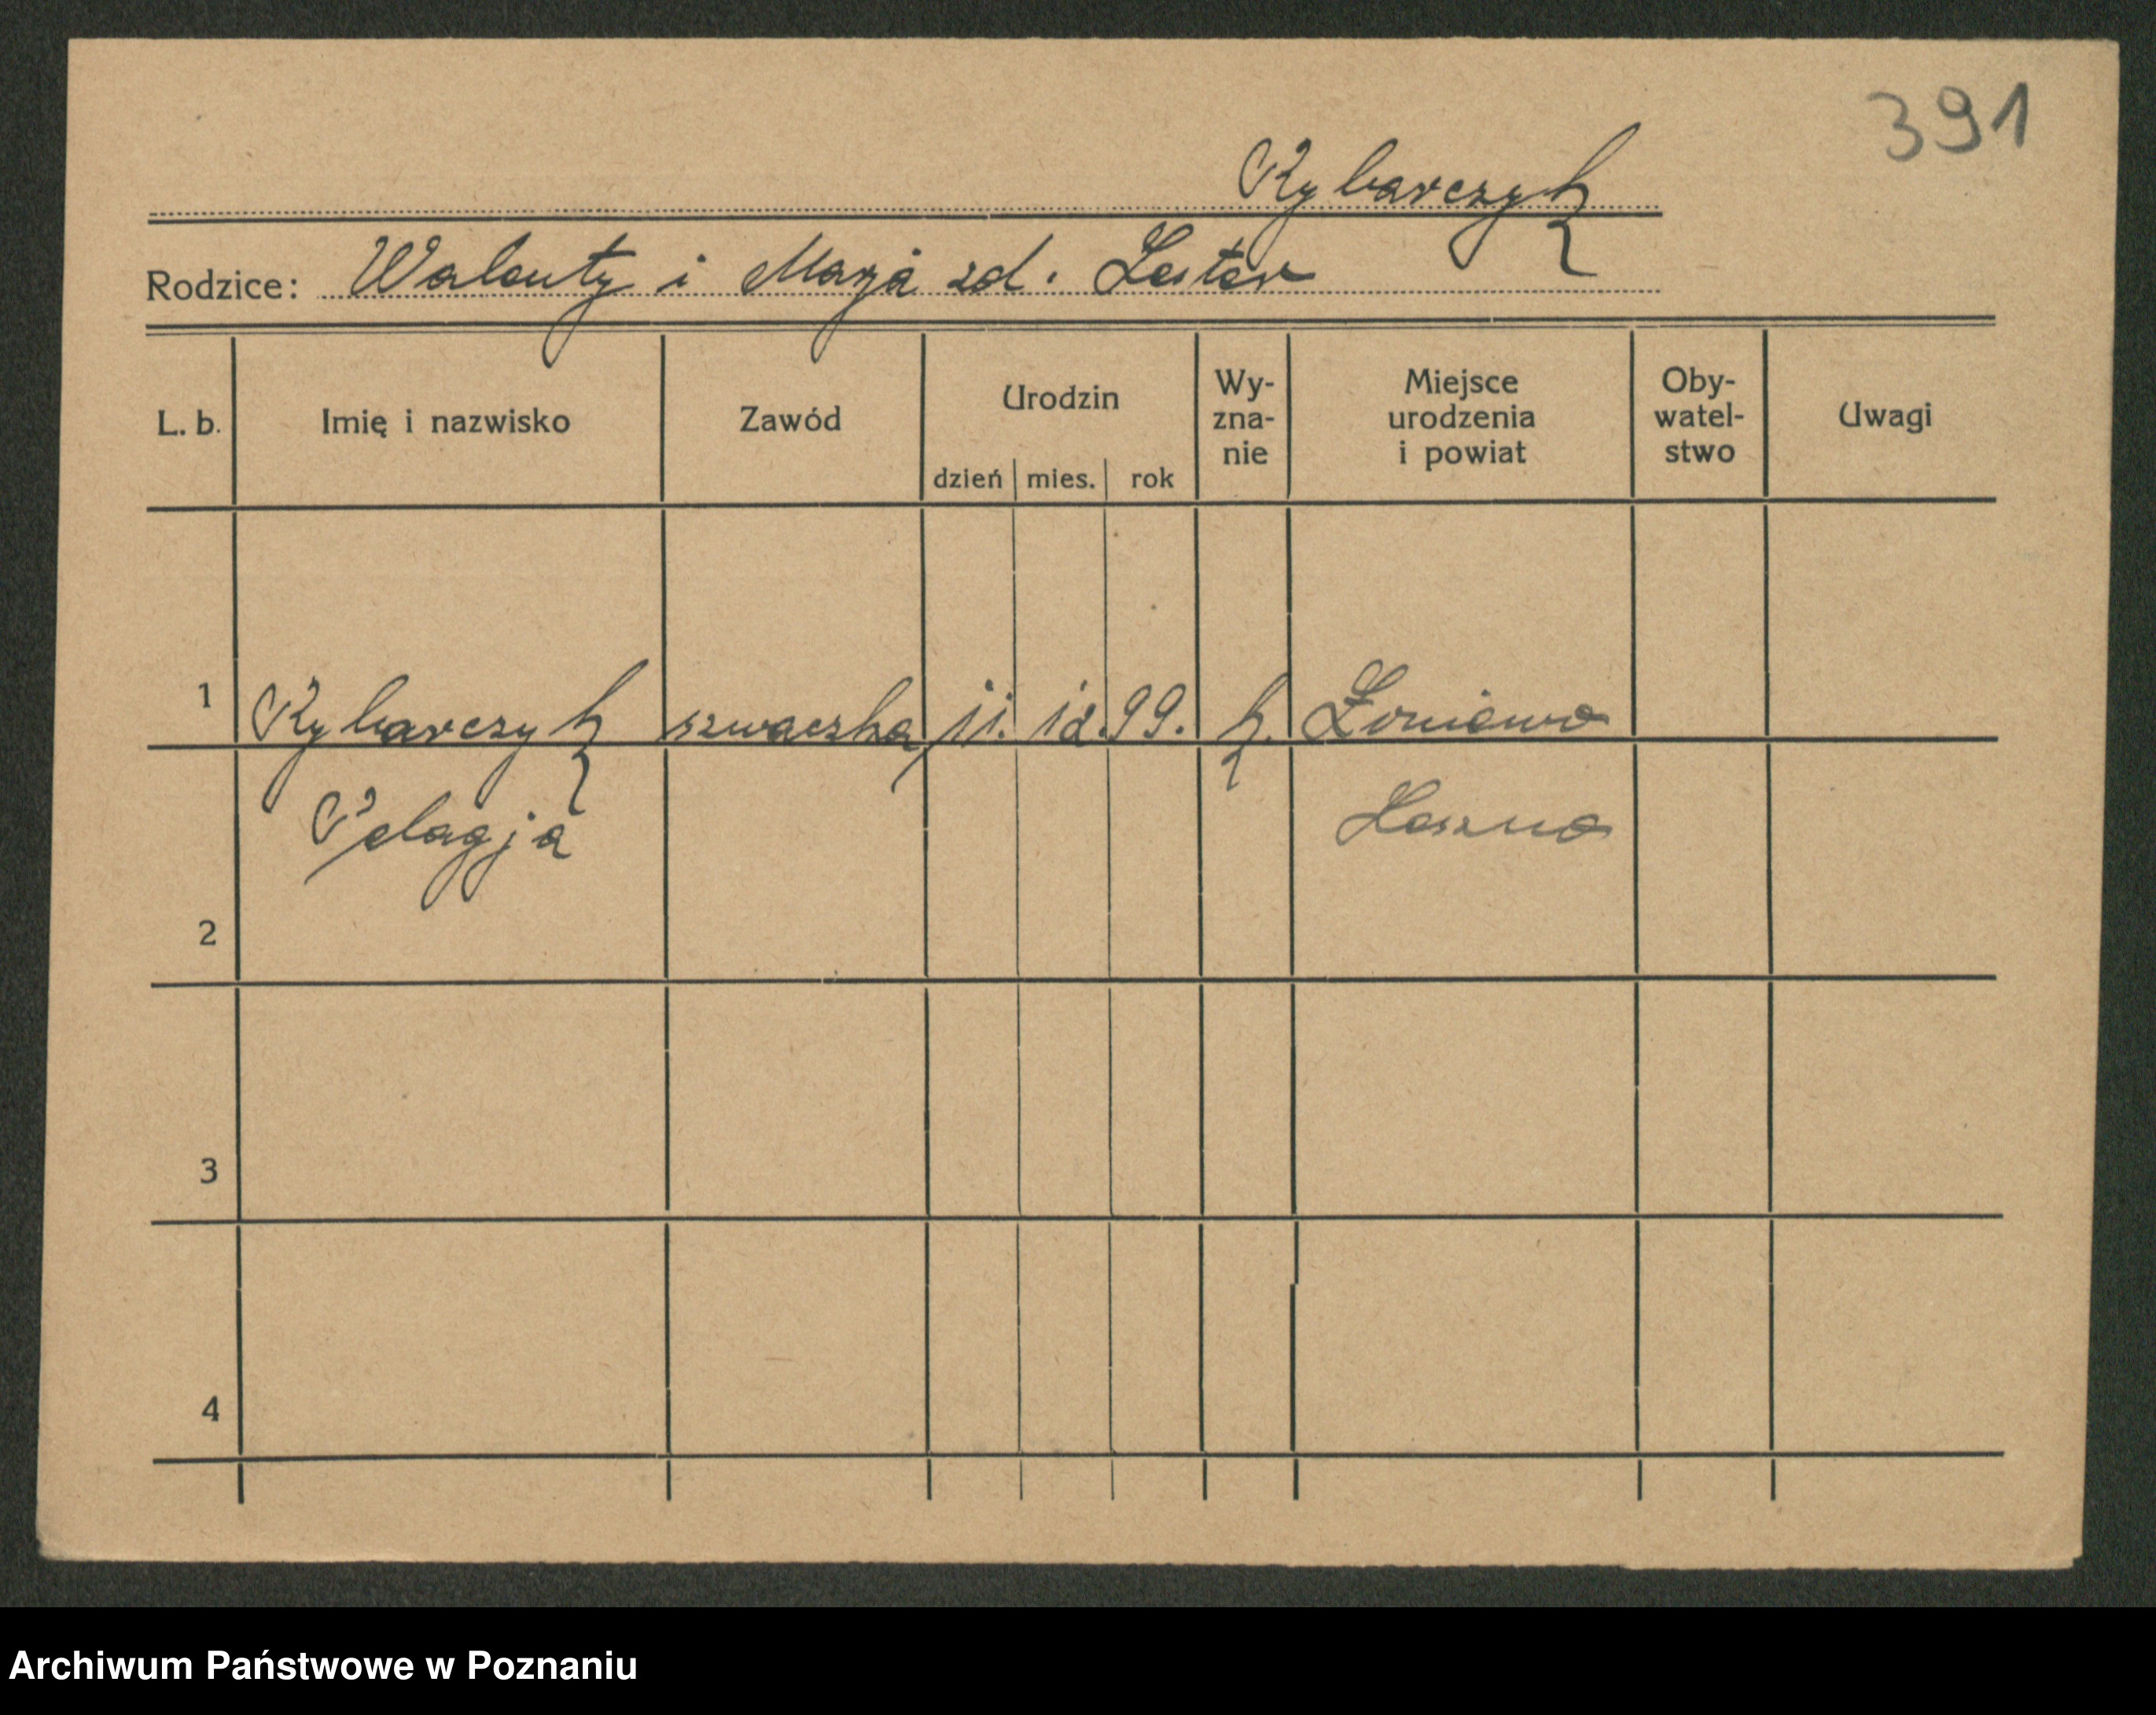 391
Rybarczyk
Rodzice: Walenty i Marja zd. Lester
L. b.
Imię i nazwisko
Zawód
Urodzin
dzień mies. rok
Wy-
zna-
nie
Miejsce
urodzenia
i powiat
Oby-
watel-
stwo
Uwagi
1 Rybarczyk szwaczka 11. 12. 99. k.
Pelagja Leszno
2
3
4
Archiwum Państwowe w Poznaniu